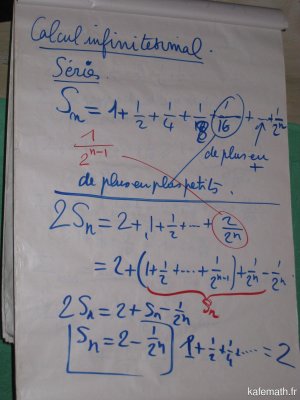 Calcul infinitésimal.
Séries
Sn = 1 + 1/2 + 1/4 + 1/8 + 1/16 + ... + 1/2^n
1/2^(n-1)
de plus en +
de plus en plus petits.
2Sn = 2 + 1 + 1/2 + ... + 2/2^n
= 2 + (1 + 1/2 + ... + 1/2^(n-1)) + 1/2^n - 1/2^n
Sn
2Sn = 2 + Sn - 1/2^n
Sn = 2 - 1/2^n
1 + 1/2 + 1/4 + .... = 2
kafemath.fr